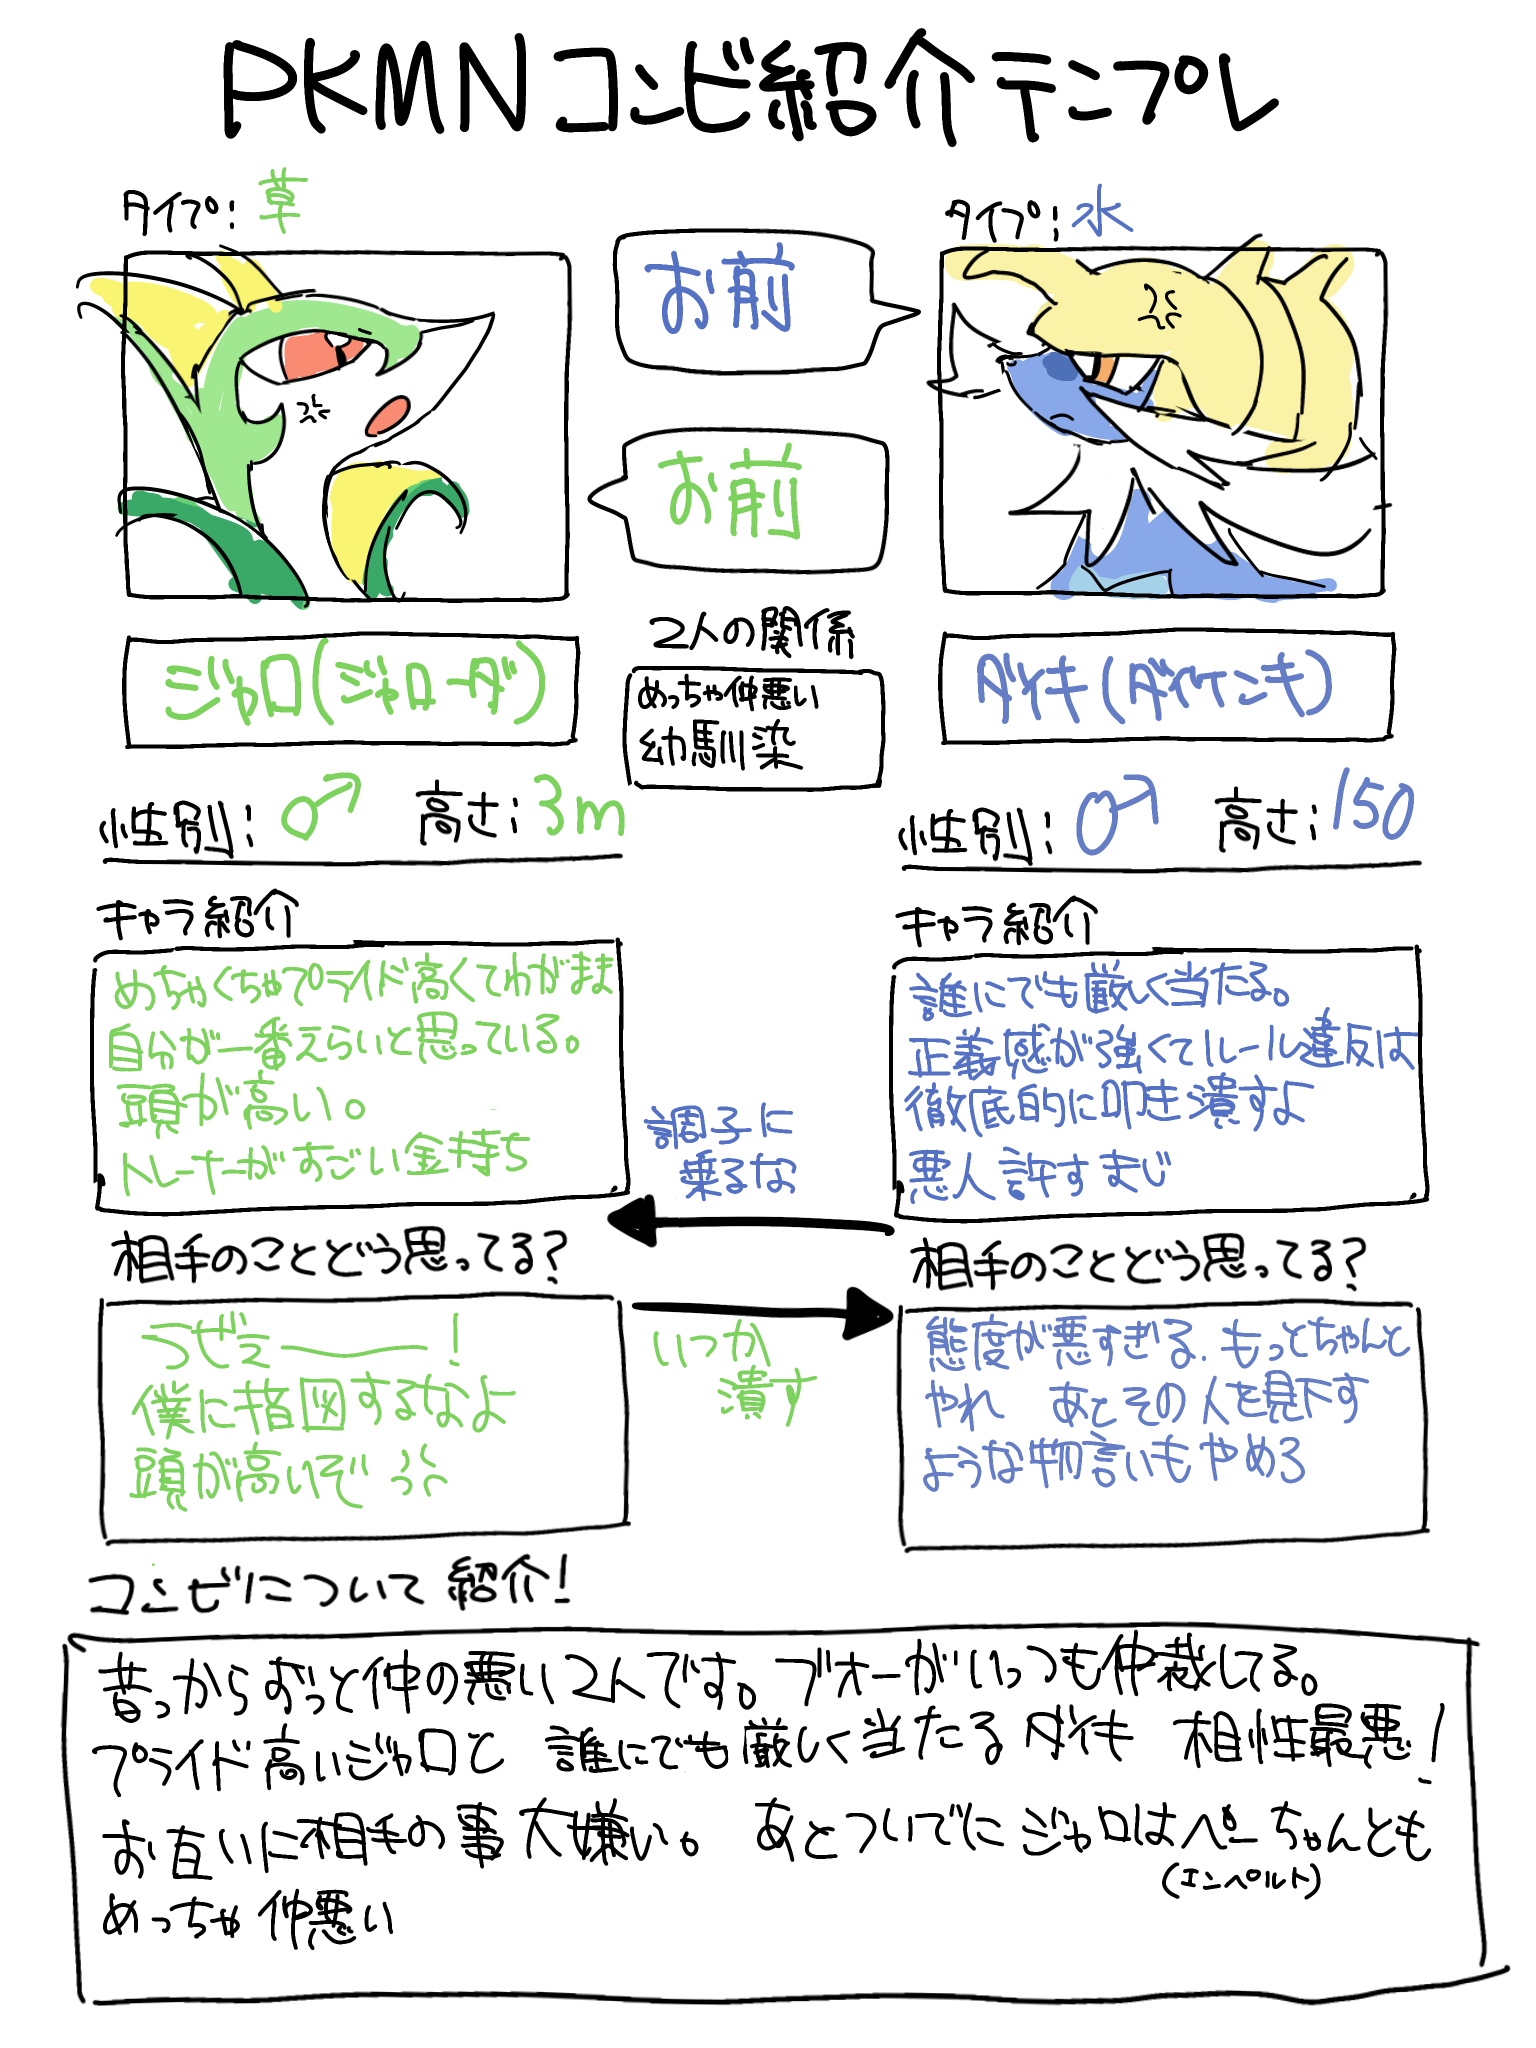 PKMNコンビ紹介テンプレ
タイプ：草
お前
お前
タイプ：水
ジャロ(ジャローダ)
2人の関係
めっちゃ仲悪い
幼馴染
ダイキ(ダイケンキ)
性別：♂ 高さ：3m
性別：♂ 高さ：150
キャラ紹介
めちゃくちゃプライド高くてわがまま
自分が一番えらいと思っている。
頭が高い。
トレーナーがすごい金持ち
キャラ紹介
誰にでも厳しく当たる。
正義感が強くてルール違反は
徹底的に叩き潰すよ
悪人許すまじ
調子に
乗るな
相手のことどう思ってる？
うぜえーー！
僕に指図するなよ
頭が高いぞ
いつか
潰す
相手のことどう思ってる？
態度が悪すぎる.もっとちゃんと
やれ あとその人を見下す
ような物言いもやめろ
コンビについて紹介！
昔っからずっと仲の悪い2人です。ブオーがいっつも仲裁してる。
プライド高いジャロと 誰にでも厳しく当たるダイキ 相性最悪！
お互いに相手の事大嫌い。 あとついでにジャロはペーちゃんとも
(エンペルト)
めっちゃ仲悪い